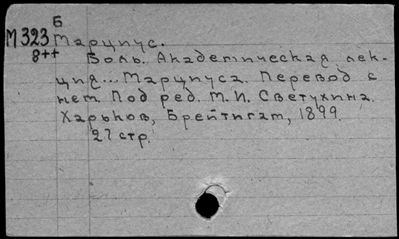 Б
М 323 Марципус.
8++ Боль. Академическая лек-
ция... Марципуса. Перевод с
нем. Под ред. М. И. Светухина.
Харьков, Брейтигам, 1899.
27 стр.